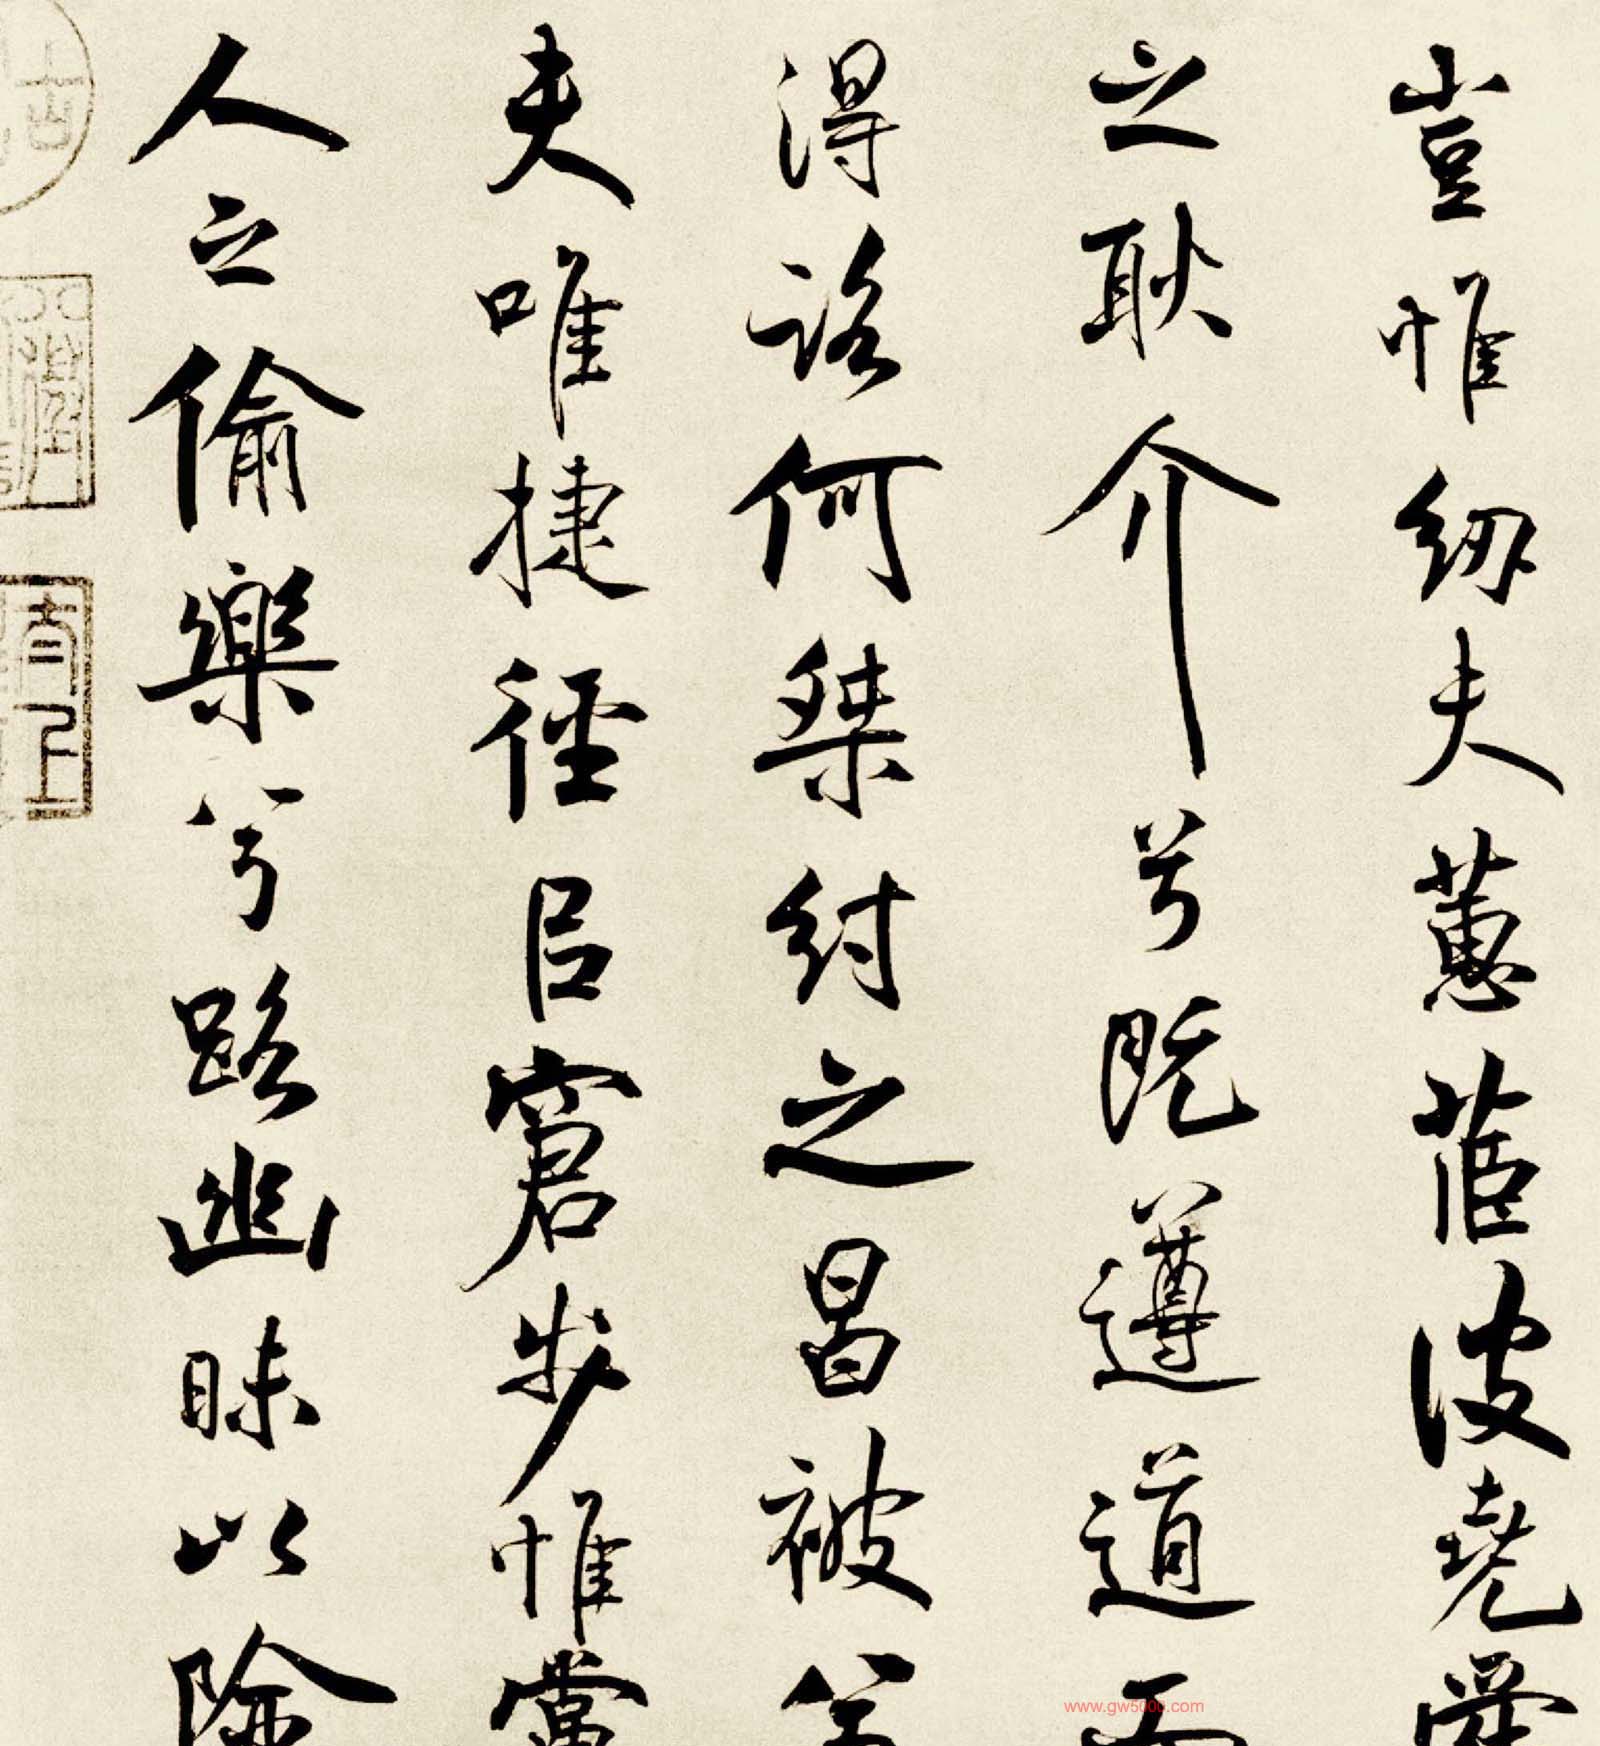 豈惟紉夫蕙茝彼堯舜
之耿介兮既遵道而
得路何桀紂之昌被兮
夫唯捷徑㠯窘步惟黨
人之偷樂兮路幽昧以險
www.gw5000.com